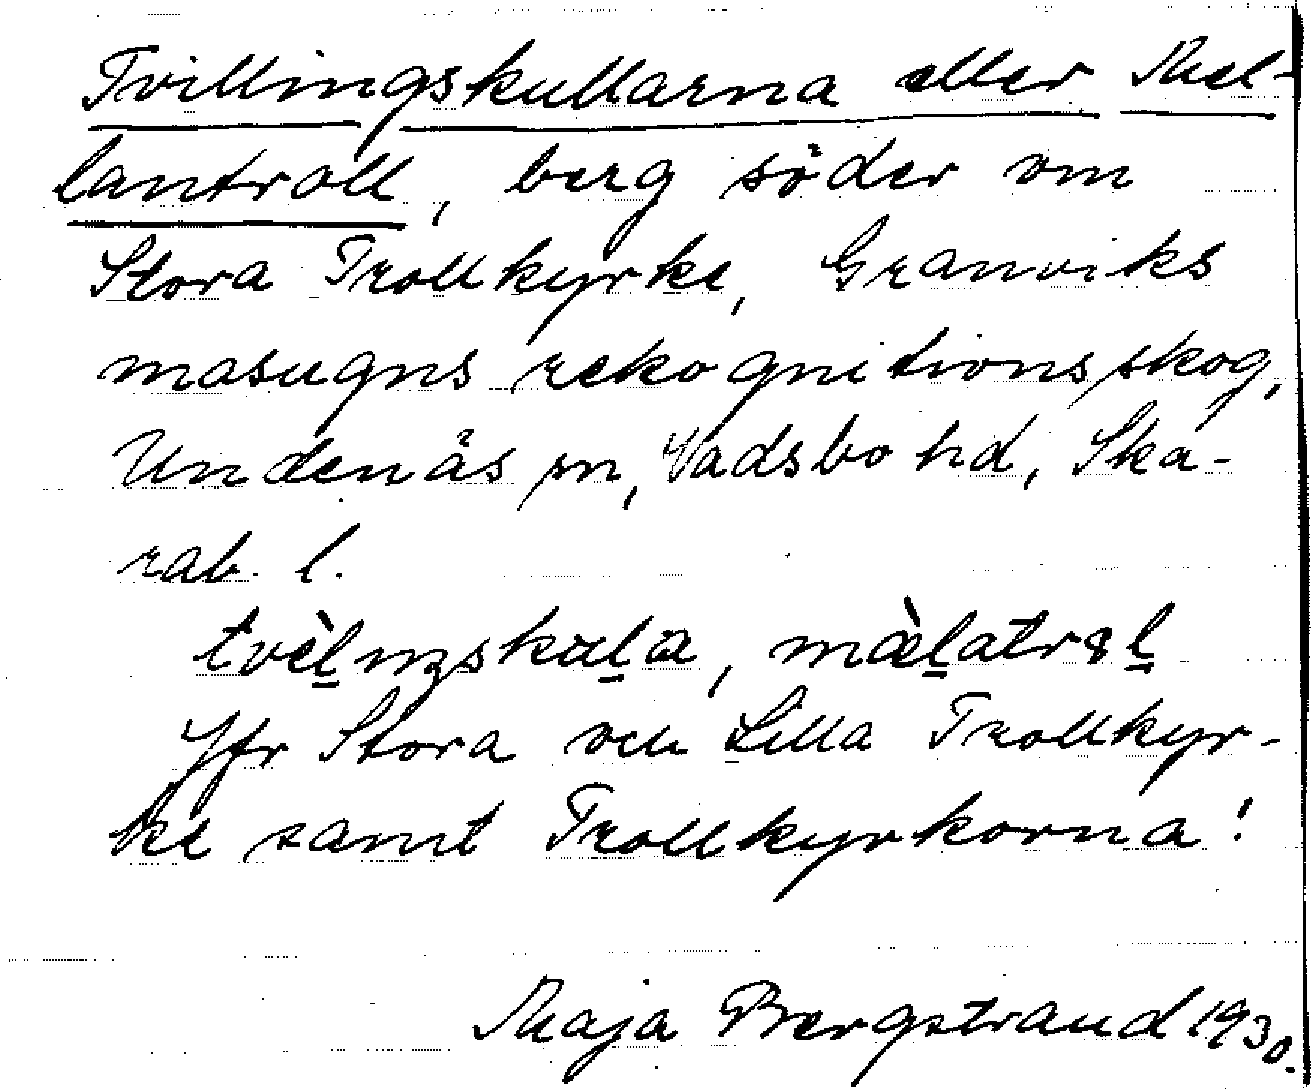 Tvillingskullarna eller Mel-
lantroll, berg söder om
Stora Trollkyrke, Granviks
masugns rekognitionsskog,
Undenäs sn, Vadsbo hd, Ska-
rab. l.
tvèl̲ıŋskul̲a, mæ̀l̲atrɷl̲
Jfr Stora och Lilla Trollkyr-
ke samt Trollkyrkorna!
Maja Bergstrand 1930.